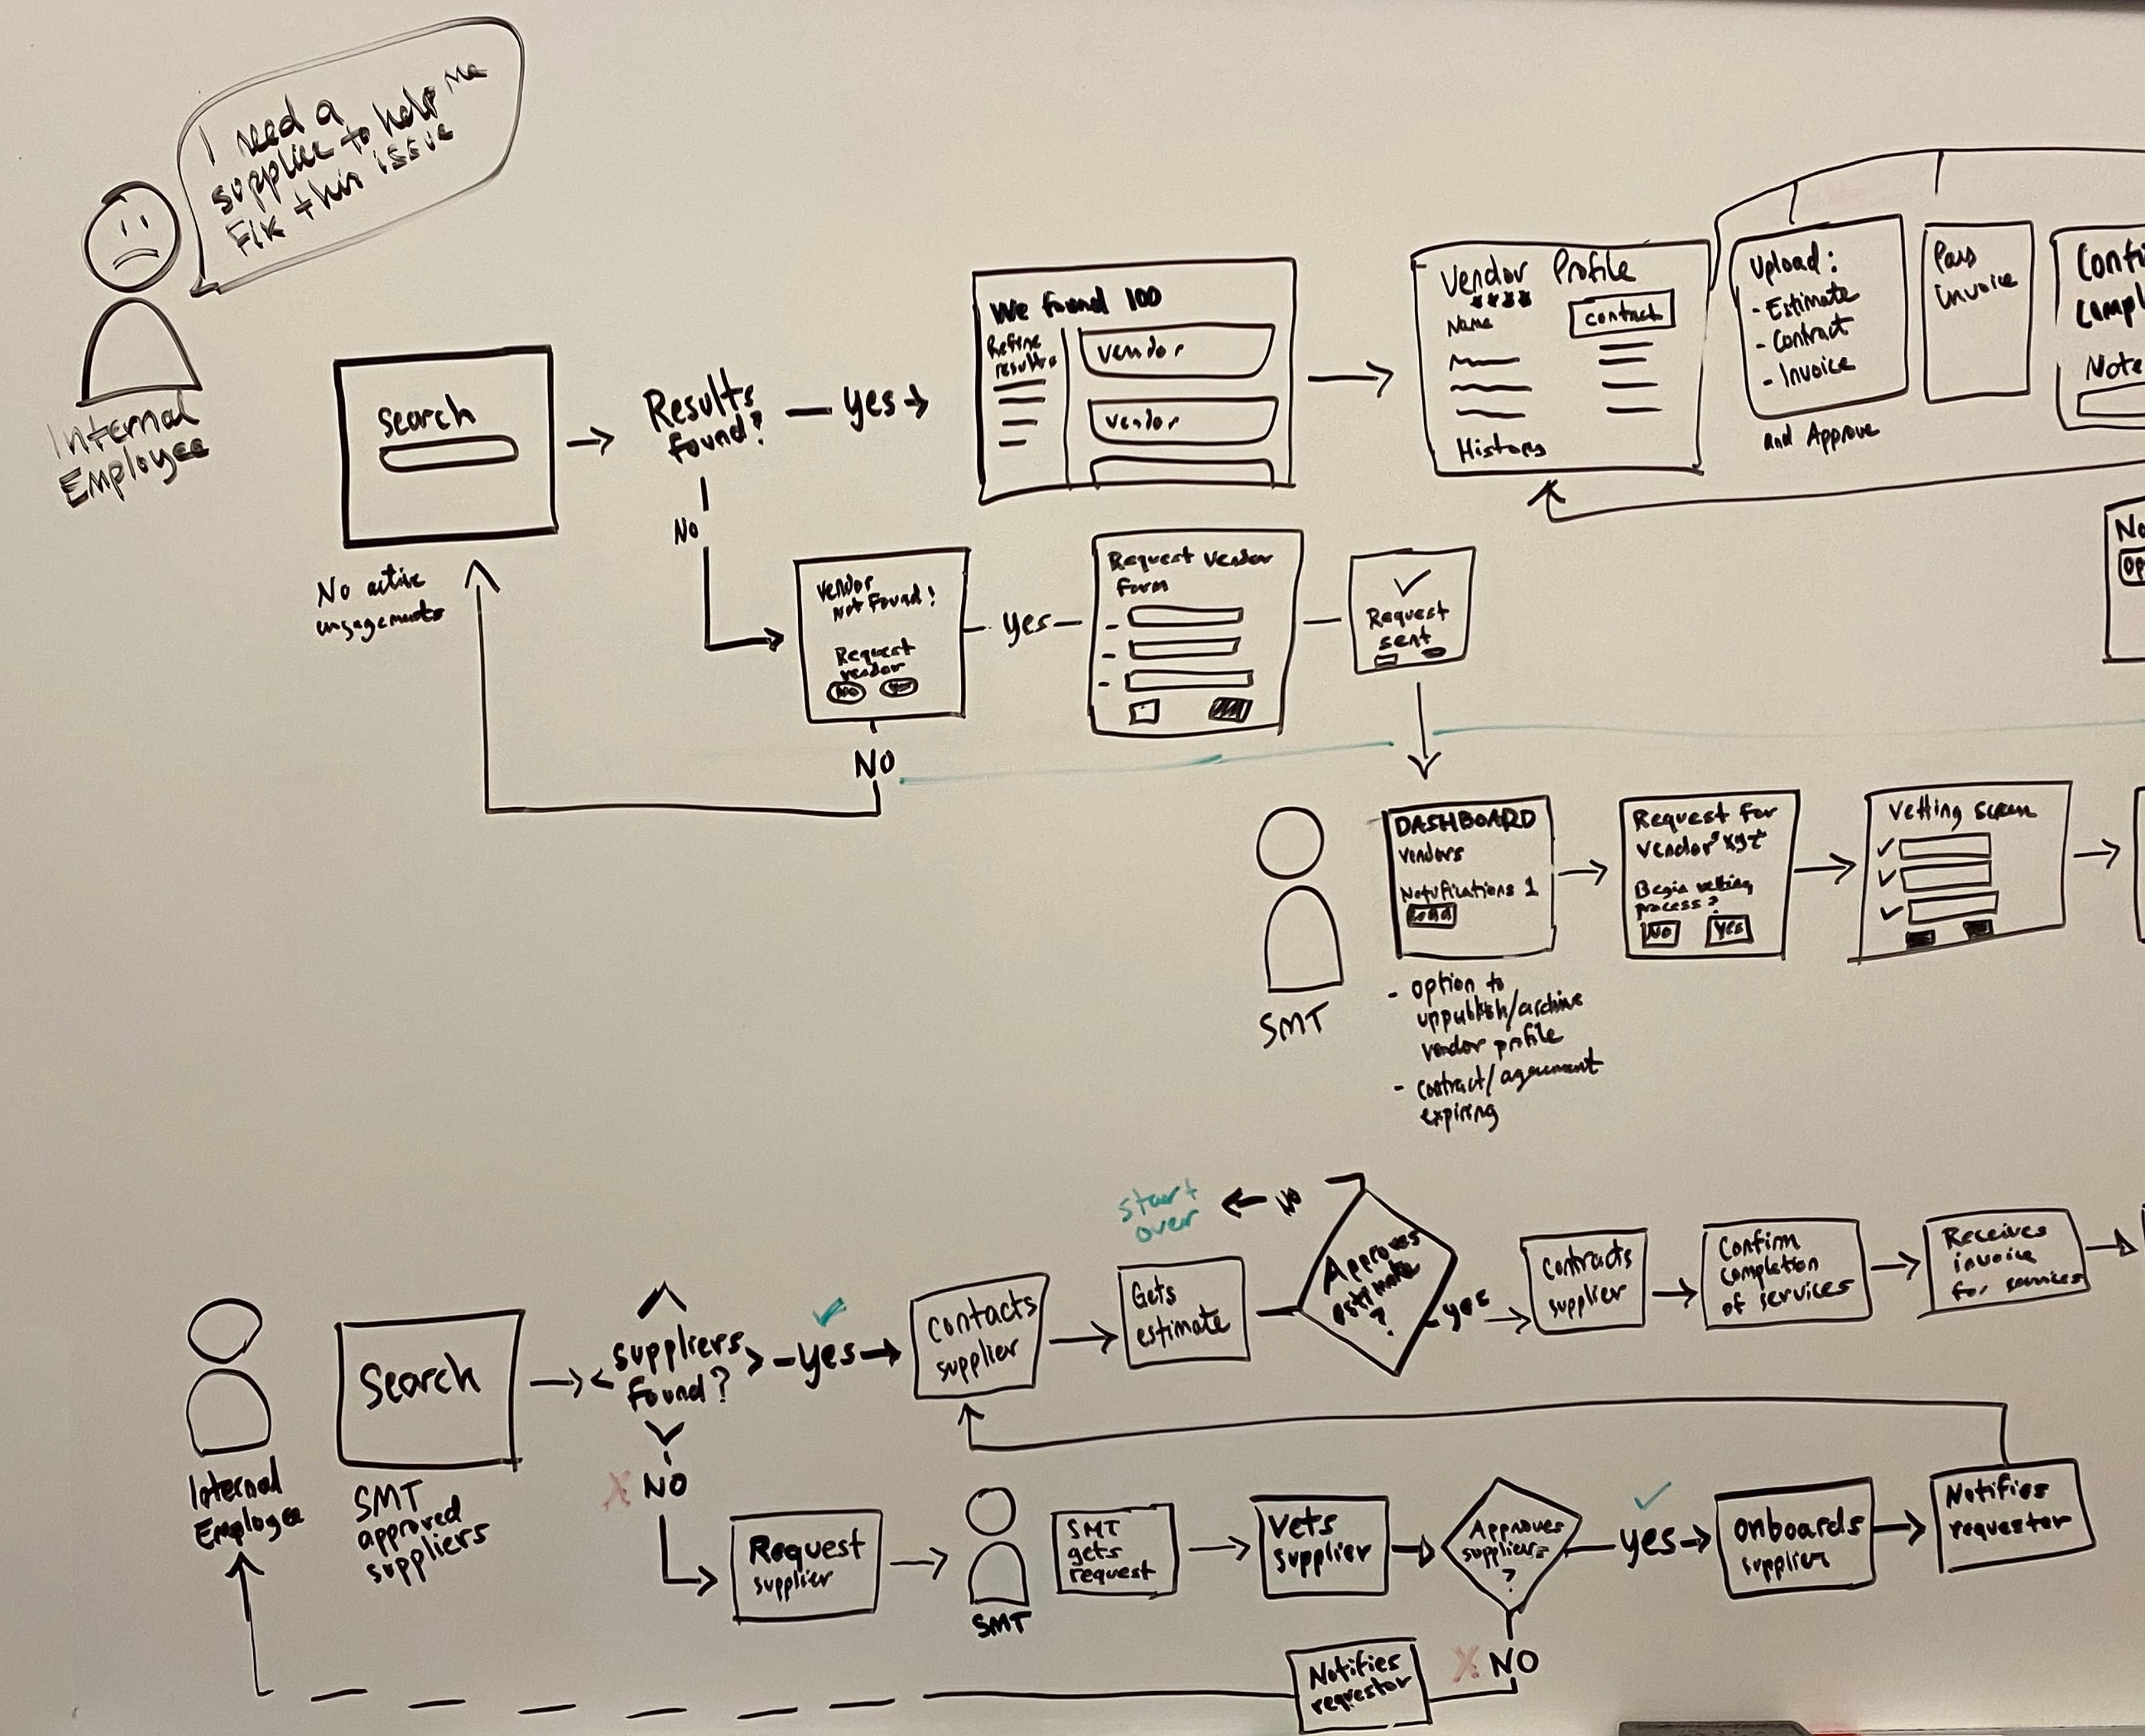 I need a
supplier to help me
Fix this issue
Internal
Employee
search
No active
engagements
Results
found?
yes
No
We found 100
Refine
results
vendor
vendor
Vendor Profile
Name
contact
History
Upload:
- Estimate
- Contract
- Invoice
and Approve
Pays
invoice
Confi
Compl
Note
No
Op
Vendor
Not Found!
Request
vendor
No
Yes
yes
Request Vendor
Form
Request
sent
NO
SMT
DASHBOARD
Vendors
Notifications 1
- option to
uppublish/archive
vendor profile
- contract/agreement
expiring
Request For
vendor "xyz"
Begin vetting
process?
No
Yes
Vetting screen
Internal
Employee
Search
SMT
approved
suppliers
suppliers
found?
yes
NO
contacts
supplier
Gets
estimate
start
over
No
Approves
estimate
?
yes
contracts
supplier
Confirm
completion
of services
Receives
invoice
for services
Request
supplier
SMT
SMT
gets
request
vets
supplier
Approves
supplier
?
yes
onboards
supplier
Notifies
requestor
NO
Notifies
requestor